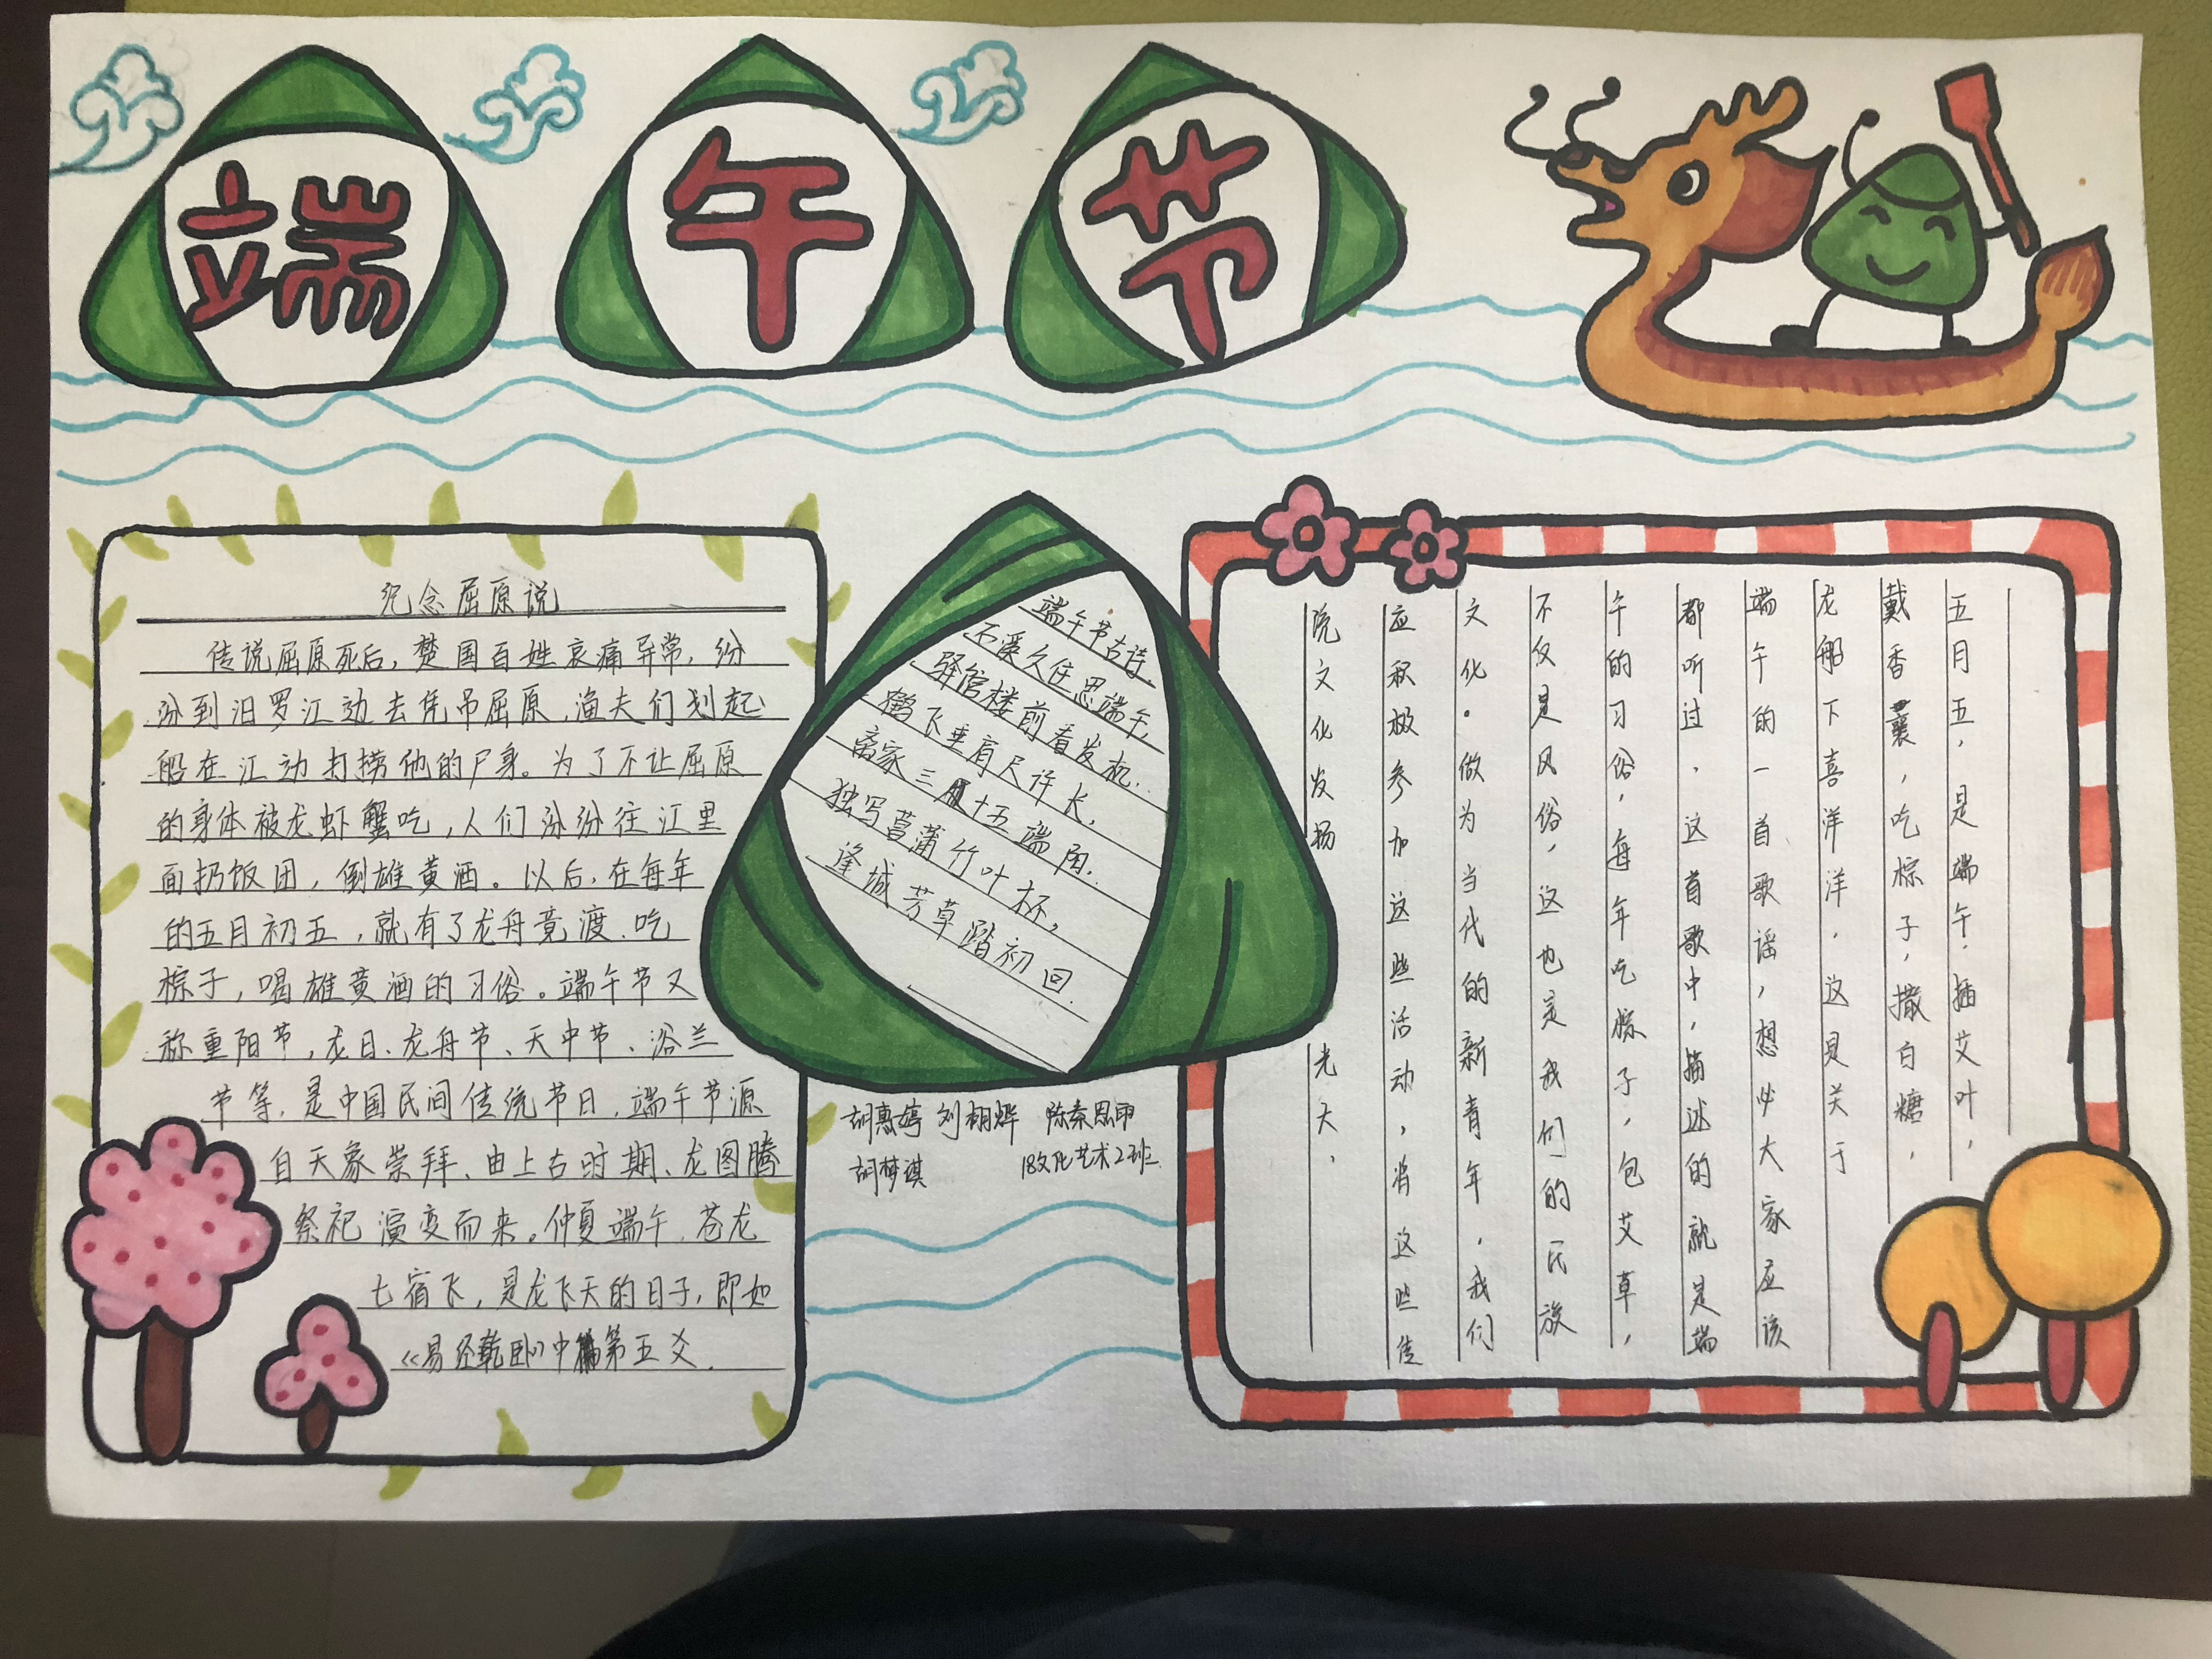 端午节
纪念屈原说
传说屈原死后，楚国百姓哀痛异常，纷
纷到汨罗江边去凭吊屈原，渔夫们划起
船在江边打捞他的尸身。为了不让屈原
的身体被龙虾蟹吃，人们纷纷往江里
面扔饭团，倒雄黄酒。以后，在每年
的五月初五，就有了龙舟竞渡、吃
粽子，喝雄黄酒的习俗。端午节又
称重阳节，龙日、龙舟节、天中节、浴兰
节等，是中国民间传统节日，端午节源
自天象崇拜、由上古时期、龙图腾
祭祀演变而来。仲夏端午，苍龙
七宿飞，是龙飞天的日子，即如
《易经乾卦》中第五爻.
端午节古诗.
不溪久住思端午,
驿馆楼前看发机.
鹤飞垂有尺许长,
离家三十五端阳.
独写菖蒲竹叶杯,
逢城芳草踏初回.
胡惠婷 刘栩烨 陈秦思甲
胡梦淇 18文化艺术2班
五月五，是端午．插艾叶，
戴香囊，吃粽子，撒白糖，
龙船下喜洋洋．这是关于
端午的一首歌谣，想必大家应该
都听过，这首歌中，描述的就是端
午的习俗，每年吃粽子，包艾草，
不仅是风俗，这也是我们的民族
文化。做为当代的新青年，我们
应积极参加这些活动，将这些传
统文化发扬光大．